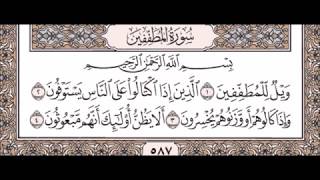 سُورَةُ المُطَفِّفِينَ
بِسْمِ اللَّهِ الرَّحْمَٰنِ الرَّحِيمِ
وَيْلٌ لِّلْمُطَفِّفِينَ ١ الَّذِينَ إِذَا اكْتَالُوا عَلَى النَّاسِ يَسْتَوْفُونَ ٢
وَإِذَا كَالُوهُمْ أَو وَّزَنُوهُمْ يُخْسِرُونَ ٣ أَلَا يَظُنُّ أُولَٰئِكَ أَنَّهُم مَّبْعُوثُونَ ٤
٥٨٧